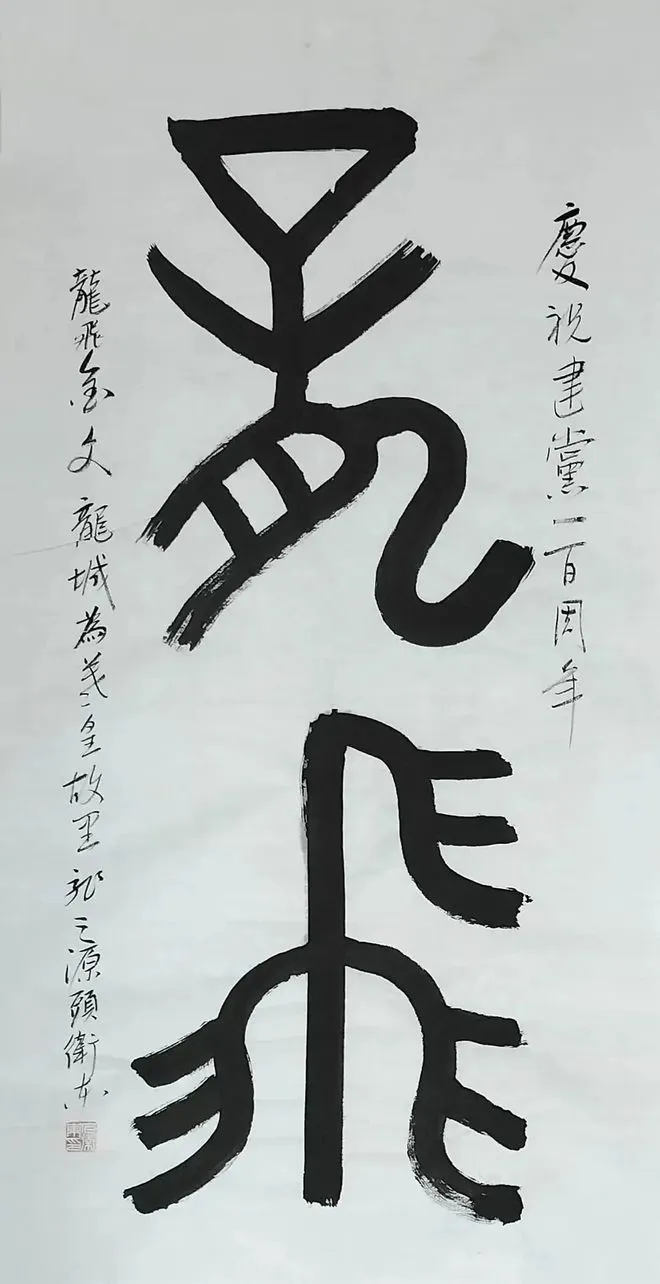 慶祝建黨一百周年
龍飛
龍飛金文龍城為羲皇故里龍之源頭衛東